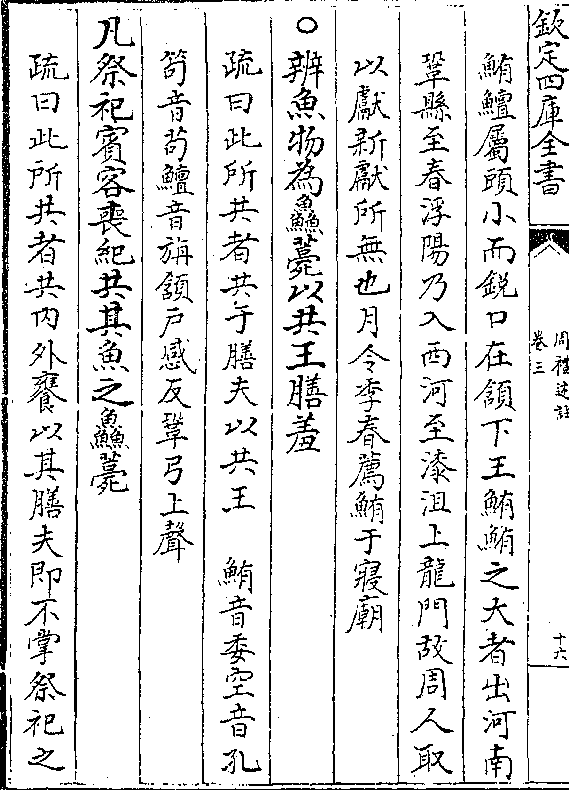 欽定四庫全書
周禮述註
卷三
十六
鮪鱣屬頭小而銳口在頷下王鮪鮪之大者出河南
鞏縣至春浮陽乃入西河至漆沮上龍門故周人取
以獻新獻所無也月令季春薦鮪于寢廟
○辨魚物為鱻薧以共王膳羞
疏曰此所共者共于膳夫以共王　鮪音委空音孔
笱音苟鱣音旃頷戸感反鞏弓上聲
凡祭祀賓客喪紀共其魚之鱻薧
疏曰此所共者共内外饔以其膳夫即不掌祭祀之